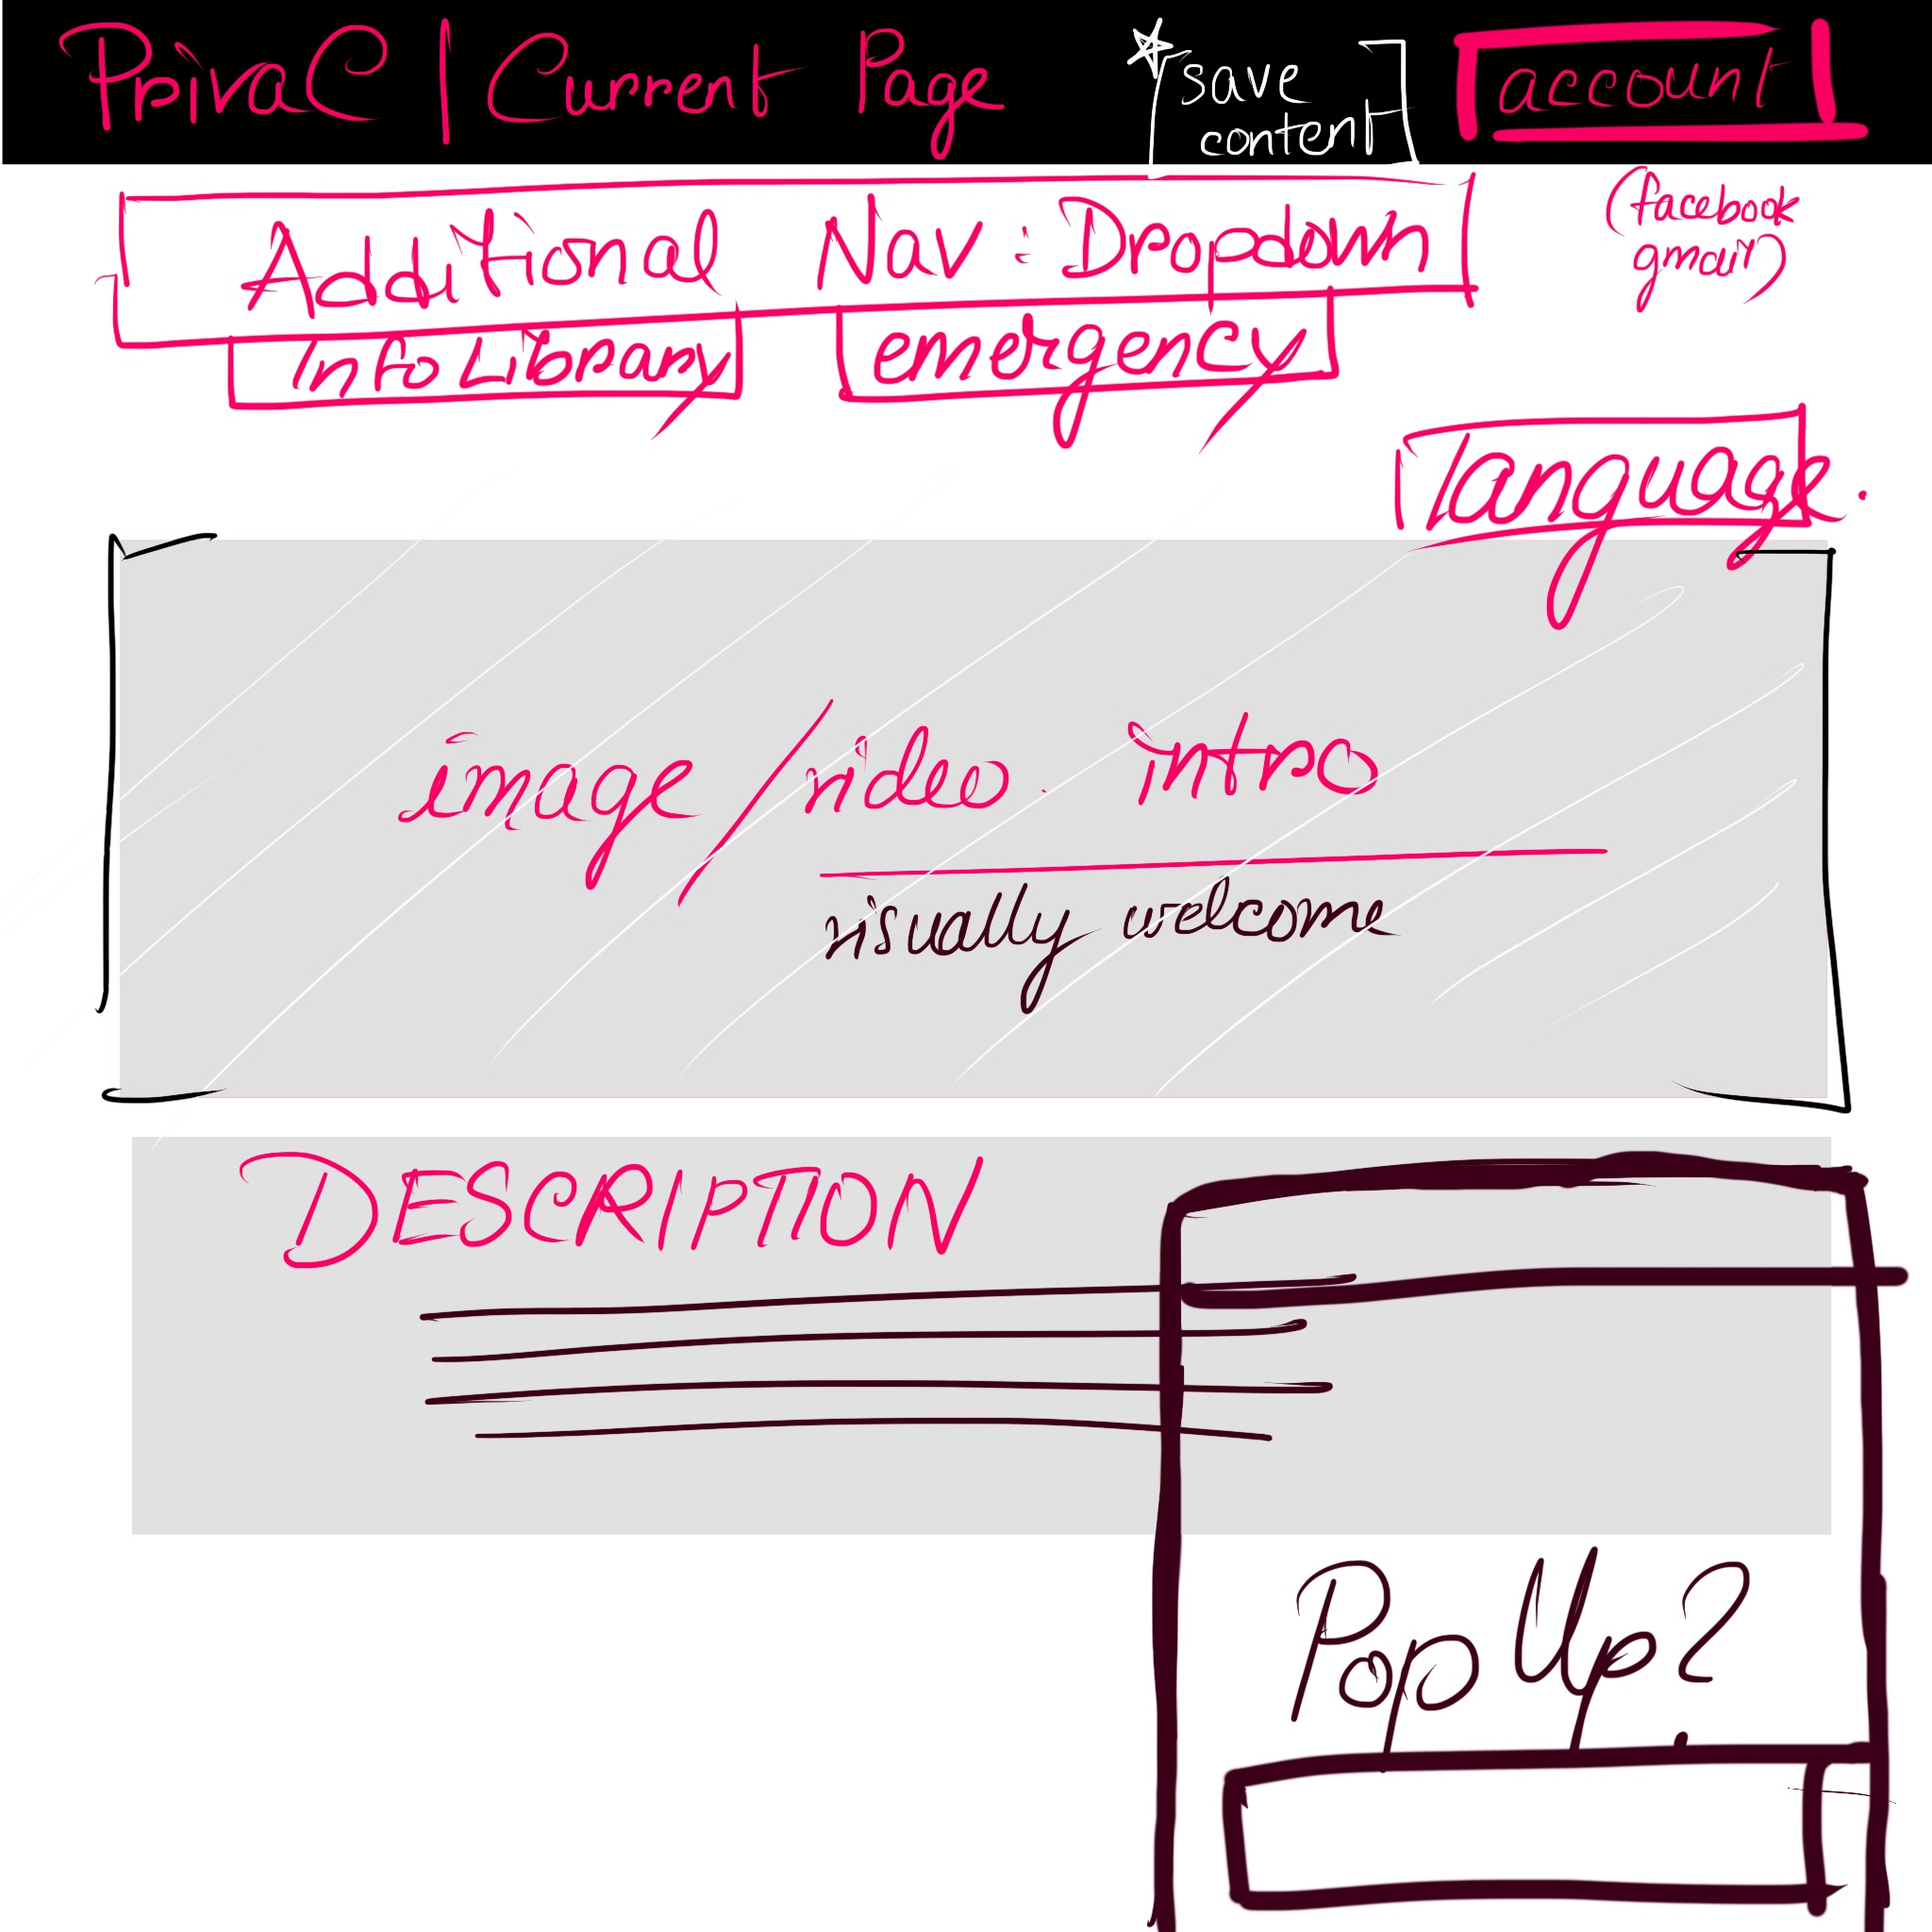 PrivaC | Current Page
* save content
account
(facebook gmail)
Additional Nav: Dropdown
Info Library
emergency
language.
image/video. intro
visually welcome
DESCRIPTION
Pop Up?